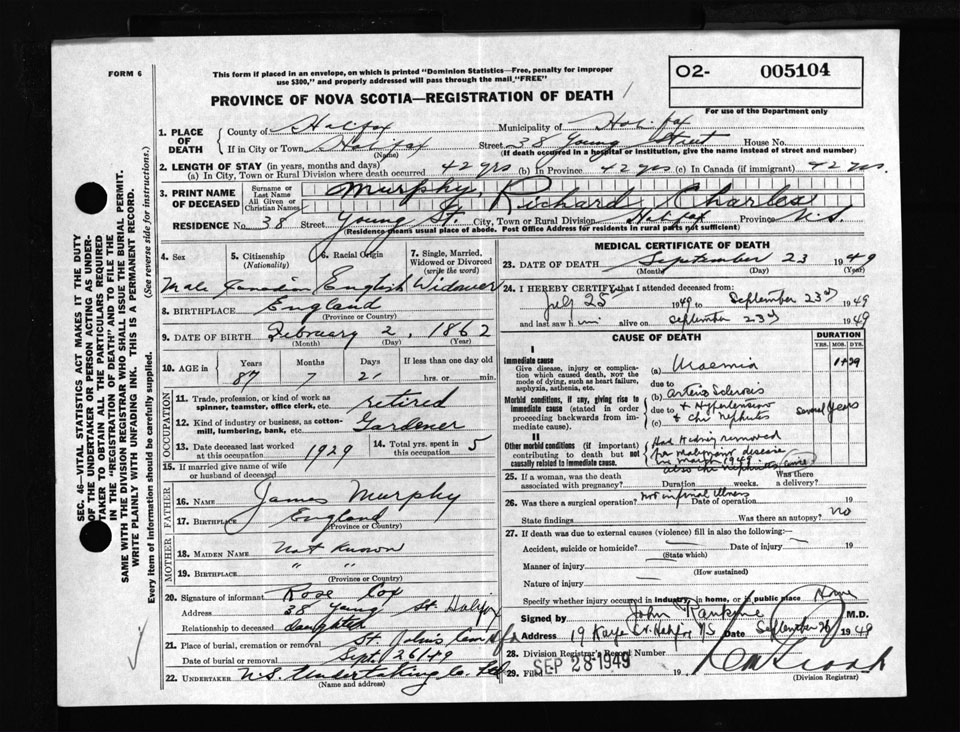 FORM 6
This form if placed in an envelope, on which is printed "Dominion Statistics—Free, penalty for improper
use $300," and properly addressed will pass through the mail, "FREE"
O2- 005104
For use of the Department only
PROVINCE OF NOVA SCOTIA—REGISTRATION OF DEATH
1. PLACE OF DEATH
County of Halifax Municipality of Halifax
If in City or Town Halifax Street 38 Young Street House No.
(Name) (If death occurred in a hospital or institution, give the name instead of street and number)
2. LENGTH OF STAY (in years, months and days)
(a) In City, Town or Rural Division where death occurred 42 yrs (b) In Province 42 yrs (c) In Canada (if immigrant) 42 yrs.
3. PRINT NAME OF DECEASED
Surname or Last Name Murphy,
All Given or Christian Names Richard Charles
RESIDENCE No. 38 Street Young St. City, Town or Rural Division Halifax Province N.S.
(Residence means usual place of abode. Post Office Address for residents in rural parts not sufficient)
4. Sex
Male
5. Citizenship (Nationality)
Canadian
6. Racial Origin
English
7. Single, Married, Widowed or Divorced (write the word)
Widower
8. BIRTHPLACE England
(Province or Country)
9. DATE OF BIRTH February 2, 1862
(Month) (Day) (Year)
10. AGE in Years Months Days If less than one day old
87 7 21 hrs. or min.
OCCUPATION
11. Trade, profession, or kind of work as spinner, teamster, office clerk, etc. retired
12. Kind of industry or business, as cotton-mill, lumbering, bank, etc. Gardener
13. Date deceased last worked at this occupation 1929
14. Total yrs. spent in this occupation 5
15. If married give name of wife or husband of deceased
FATHER
16. NAME James Murphy
17. BIRTHPLACE England
(Province or Country)
MOTHER
18. MAIDEN NAME Not Known
19. BIRTHPLACE " "
(Province or Country)
20. Signature of informant Rose Cox
Address 38 Young St. Halifax
Relationship to deceased daughter
21. Place of burial, cremation or removal St. John's Cem Hfx
Date of burial or removal Sept. 26/49
22. UNDERTAKER N.S. Undertaking Co. Ltd
(Name and address)
MEDICAL CERTIFICATE OF DEATH
23. DATE OF DEATH September 23 1949
(Month) (Day) (Year)
24. I HEREBY CERTIFY that I attended deceased from:
July 25th 1949 to September 23rd 1949
and last saw him alive on September 23rd 1949
CAUSE OF DEATH
DURATION
YRS. MOS. DYS.
I
Immediate cause
Give disease, injury or complication which caused death, NOT the mode of dying, such as heart failure, asphyxia, asthenia, etc.
(a) Uraemia
due to
Morbid conditions, if any, giving rise to immediate cause (stated in order proceeding backwards from immediate cause)
(b) arterio Sclerosis
due to + Hypertension
(c) + Chr nephritis
several years
II
Other morbid conditions (if important) contributing to death but not causally related to immediate cause.
Had Kidney removed
for malignant disease
in march 1949
also chr nephritis
25. If a woman, was the death associated with pregnancy? Duration weeks. Was there a delivery?
26. Was there a surgical operation? Not in final illness Date of operation 19
State findings Was there an autopsy? no
27. If death was due to external causes (violence) fill in also the following:—
Accident, suicide or homicide? — Date of injury — 19
(State which)
Manner of injury —
(How sustained)
Nature of injury —
Specify whether injury occurred in industry, in home, or in public place Home
Signed by John Rankine M.D.
Address 19 Kaye St. Halifax NS Date September 26 1949
28. Division Registrar's Record Number
29. Filed SEP 28 1949 19
(Division Registrar)
SEC. 46—VITAL STATISTICS ACT MAKES IT THE DUTY
OF THE UNDERTAKER OR PERSON ACTING AS UNDER-
TAKER TO OBTAIN ALL THE PARTICULARS REQUIRED
IN THE "REGISTRATION OF DEATH" AND TO FILE THE
SAME WITH THE DIVISION REGISTRAR WHO SHALL ISSUE THE BURIAL PERMIT.
WRITE PLAINLY WITH UNFADING INK. THIS IS A PERMANENT RECORD.
Every item of information should be carefully supplied. (See reverse side for instructions.)